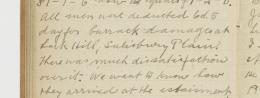 All men were deducted 6d 5
day for barrack damages at
Lark Hill, Salisbury Plain!
There was much dissatisfaction
over it. We want to know how
they arrived at the estament